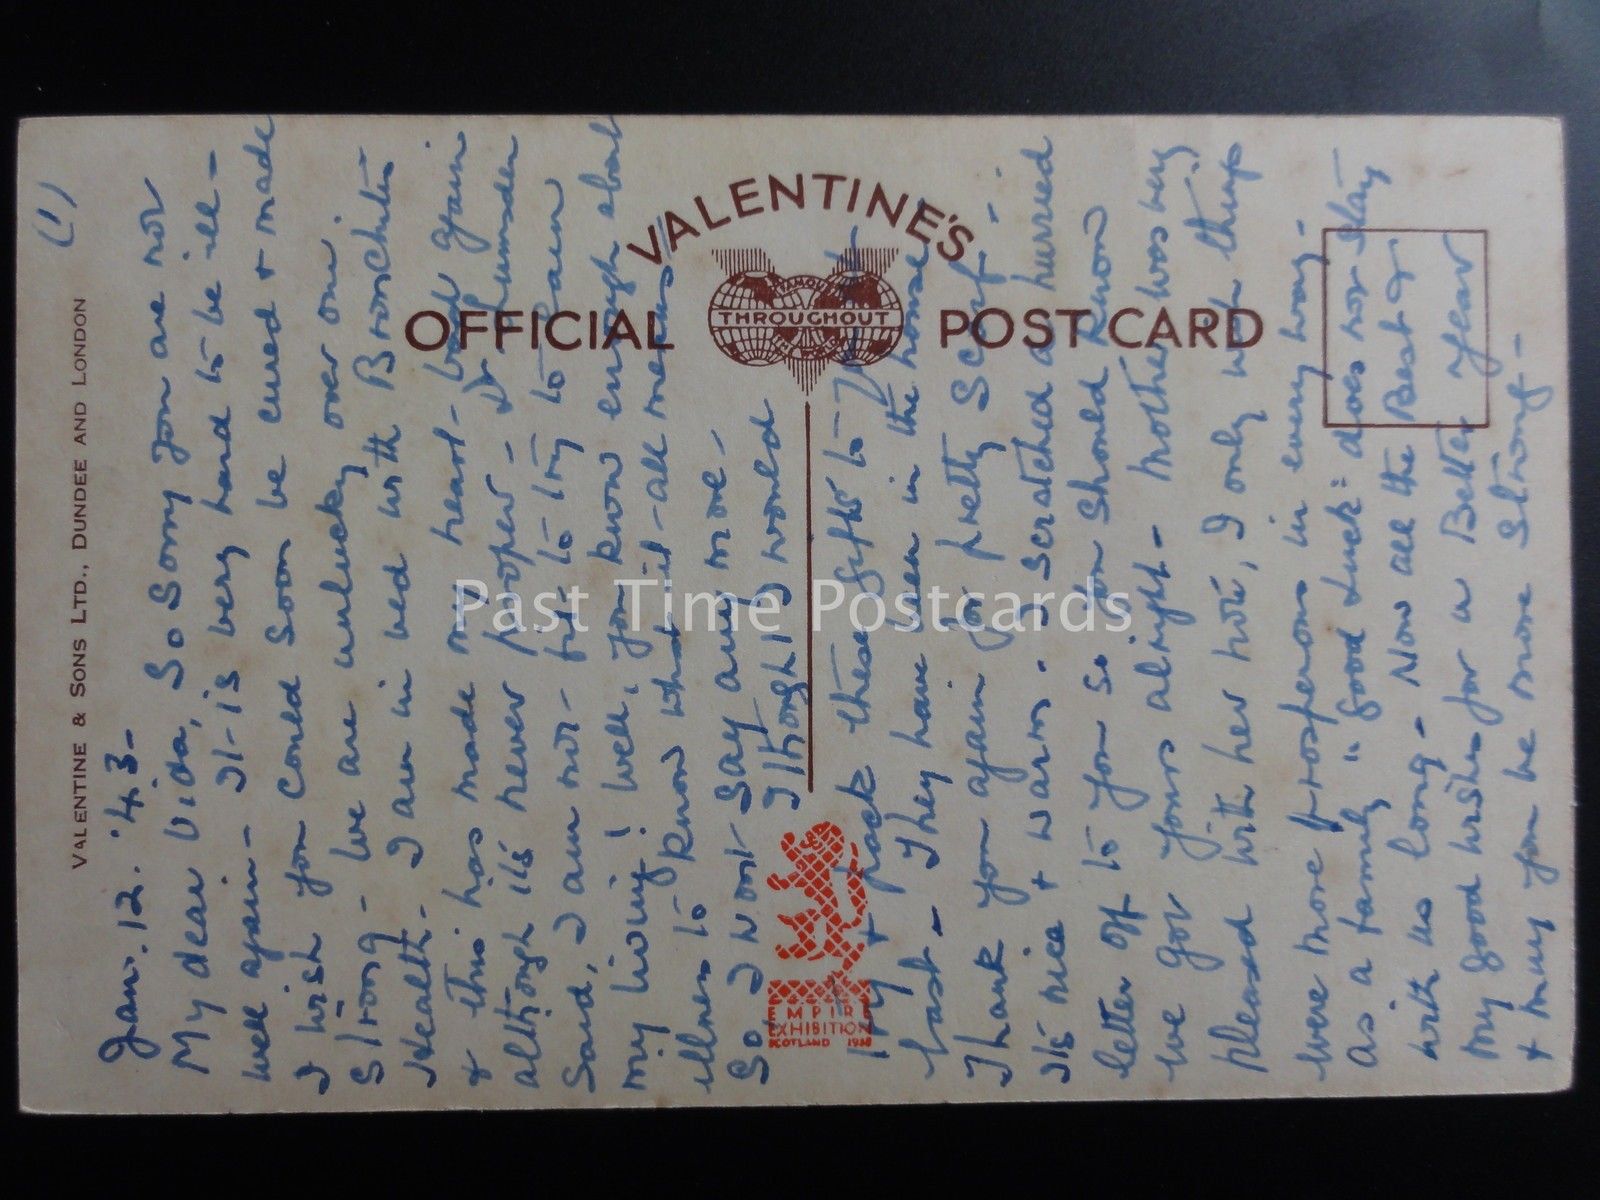 (1)
VALENTINE & SONS LTD., DUNDEE AND LONDON
VALENTINE'S
OFFICIAL POST CARD
FAMOUS
THROUGHOUT
THE WORLD
EMPIRE
EXHIBITION
SCOTLAND 1938
Past Time Postcards
Jan. 12. '43-
My dear Vida, So Sorry you are not
well again - It is very hard to be ill -
I wish you could soon be cured & made
Strong - We are unlucky over our
Health. I am in bed with Bronchitis
& this has made my heart bad again
although it's never proper - Dr
Said, I am not fit to try to earn
my living! Well, you know enough about
illness to know what it all means
So I wont Say any more -
I thought I would
try & pack these gifts to
last - They have been in the house
Thank you again for pretty Scarf -
It's nice & warm. I Scratched a hurried
letter off to you so you Should know
we got yours alright - Mother was very
pleased with her too, I only wish things
were more prosperous in every way -
as a family "Good Luck" does not stay
with us long - Now all the Best &
my good wishes for a Better Year
& may you be more Strong -